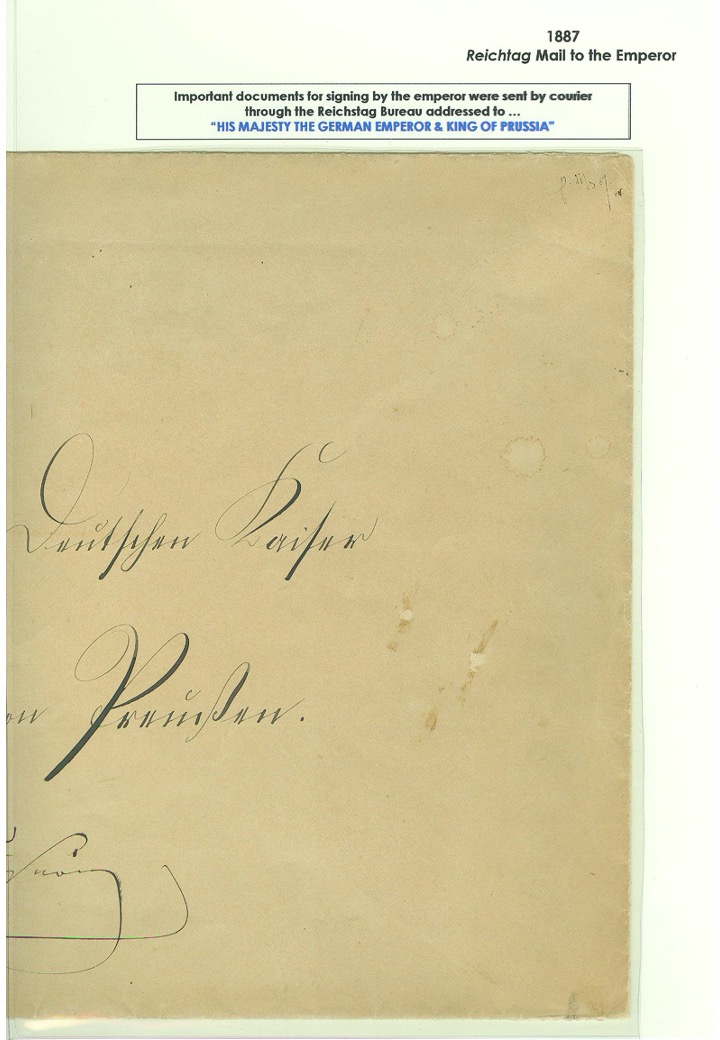 1887
Reichtag Mail to the Emperor
Important documents for signing by the emperor were sent by courier
through the Reichstag Bureau addressed to ...
“HIS MAJESTY THE GERMAN EMPEROR & KING OF PRUSSIA”
Deutschen Kaiser
on Preußen.